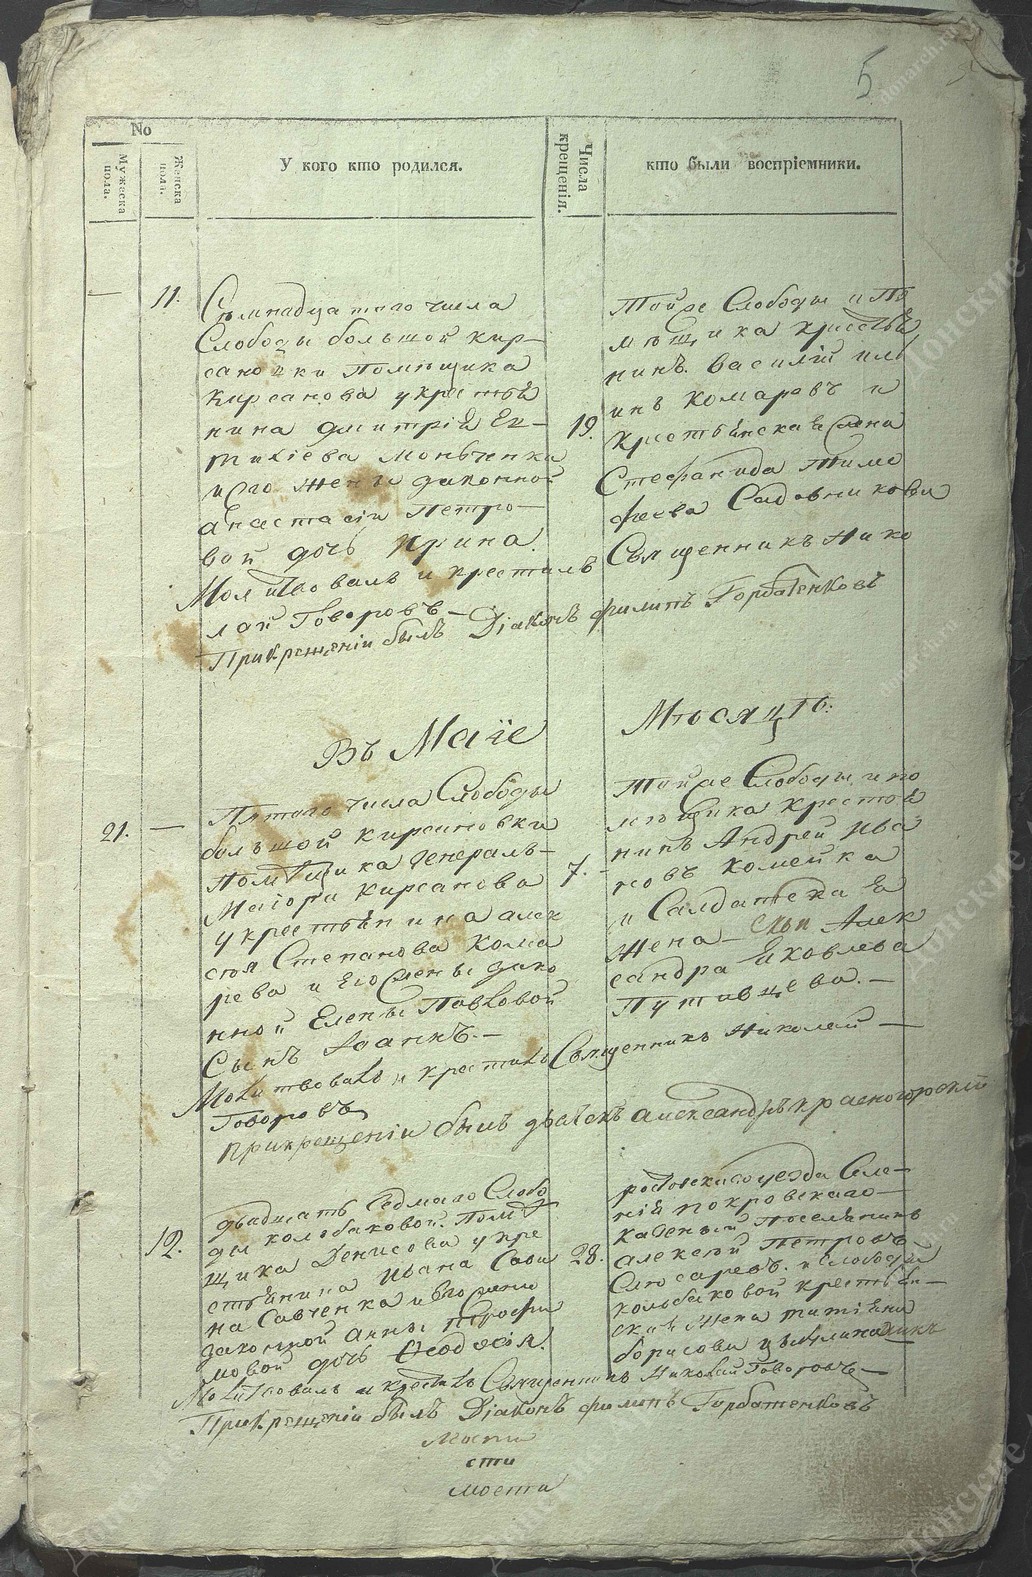 5
No
Мужеска пола.
Женска пола.
У кого кто родился.
Числа крещенія.
кто были воспріемники.
11.
Семнадцатаго числа
Слободы большой Кир-
сановки Помѣщика
Кирсанова у крестья
нина Дмитрія Ев-
тихіева Моньченки
и Его жены законной
Анастасіи Петро-
вой дочь Ирина.
19.
Тойже Слободы и По
мѣщика крестья
нинъ Василій Иль
инъ Комаревъ и
крестьянская жена
Стефанида Тимо
феева Садовникови
Молитвовалъ и крестилъ Священникъ Нико
лай Говоровъ.-
При крещеніи былъ Діаконъ Филипъ Горбатенковъ
Въ Маіе Мѣсяцѣ.
21. —
Пятого числа Слободы
большой Кирсановки
Помѣщика Генералъ-
Маіора Кирсанова
у крестьянина Алек
сѣя Степанова Кома
рева и Его жены зако
нной Елены Павловой
Сынъ Іоаннъ.-
7.
Тойже Слободы и по
мѣщика крестья
нинъ Андрей Ива
новъ Комейка
и Салдатска Я
жена - Алек
сандра Яковлева
Путивцева. —
Молитвовалъ и крестилъ Священникъ Николай —
Говоровъ
При крещеніи былъ дьячекъ Александръ Красногорскій
12.
двадцать Седмаго Слобо
ды Колобаковой. Помѣ
щика Денисова у кре
стьянина Ивана Сави
на Савченка и Его жены
законной Анны Трофи
мовой дочь Ѳеодосія.
28.
ростовскаго уезда Селе-
нія Покровскаго —
казеный Поселянинъ
Алексѣй Петровъ
Слюсаревъ. и Слободы
Колобаковой крестьян-
ская жена Татіяна
Борисова
Молитвовалъ и крестилъ Священникъ Николай Говоровъ —
При крещеніи былъ Діаконъ Филипъ Горбатенковъ
сти
моста